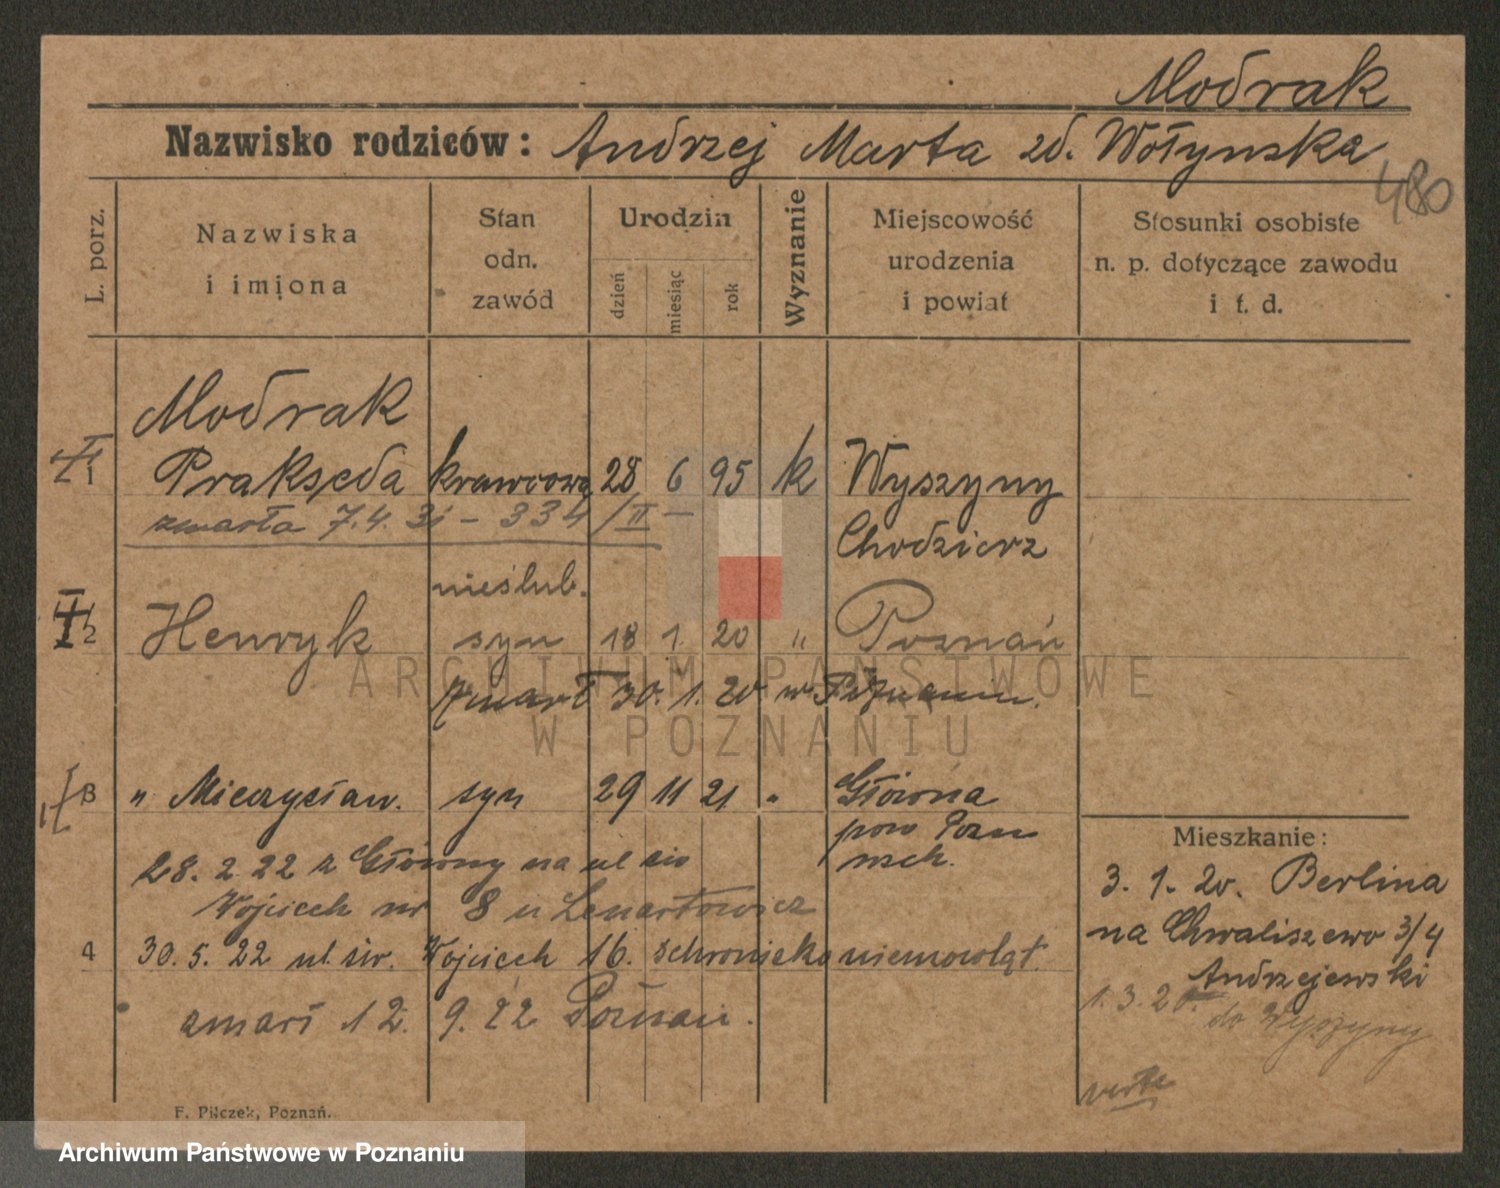 Modrak
Nazwisko rodziców: Andrzej Marta zd. Wołynska
480
L. porz.
Nazwiska
i imiona
Stan
odn.
zawód
Urodzin
dzień
miesiąc
rok
Wyznanie
Miejscowość
urodzenia
i powiat
Stosunki osobiste
n. p. dotyczące zawodu
i t. d.
Modrak
1 Prakseda krawcowa 28 6 95 k Wyszyny
zmarła 7.4.31 – 334/II – Chodzierz
nieślub.
2 Henryk syn 18 1. 20 " Poznań
zmarł 30. 1. 20 w Poznaniu.
3 " Mieczysław. syn 29 11 21 " Główna
pow Pozn
wsch.
28. 2. 22 z Główny na ul św
Wojciech nr 8 u Lenartowicz
4 30. 5. 22 ul. św. Wojciech 16. schroniska niemowląt.
zmarł 12. 9. 22 Poznań.
Mieszkanie:
3. 1. 20. Berlina
na Chwaliszewo 3/4
Andrzejewski
1. 3. 20. do Wyszyny
verte
F. Pilczek, Poznań.
ARCHIWUM PAŃSTWOWE
W POZNANIU
Archiwum Państwowe w Poznaniu